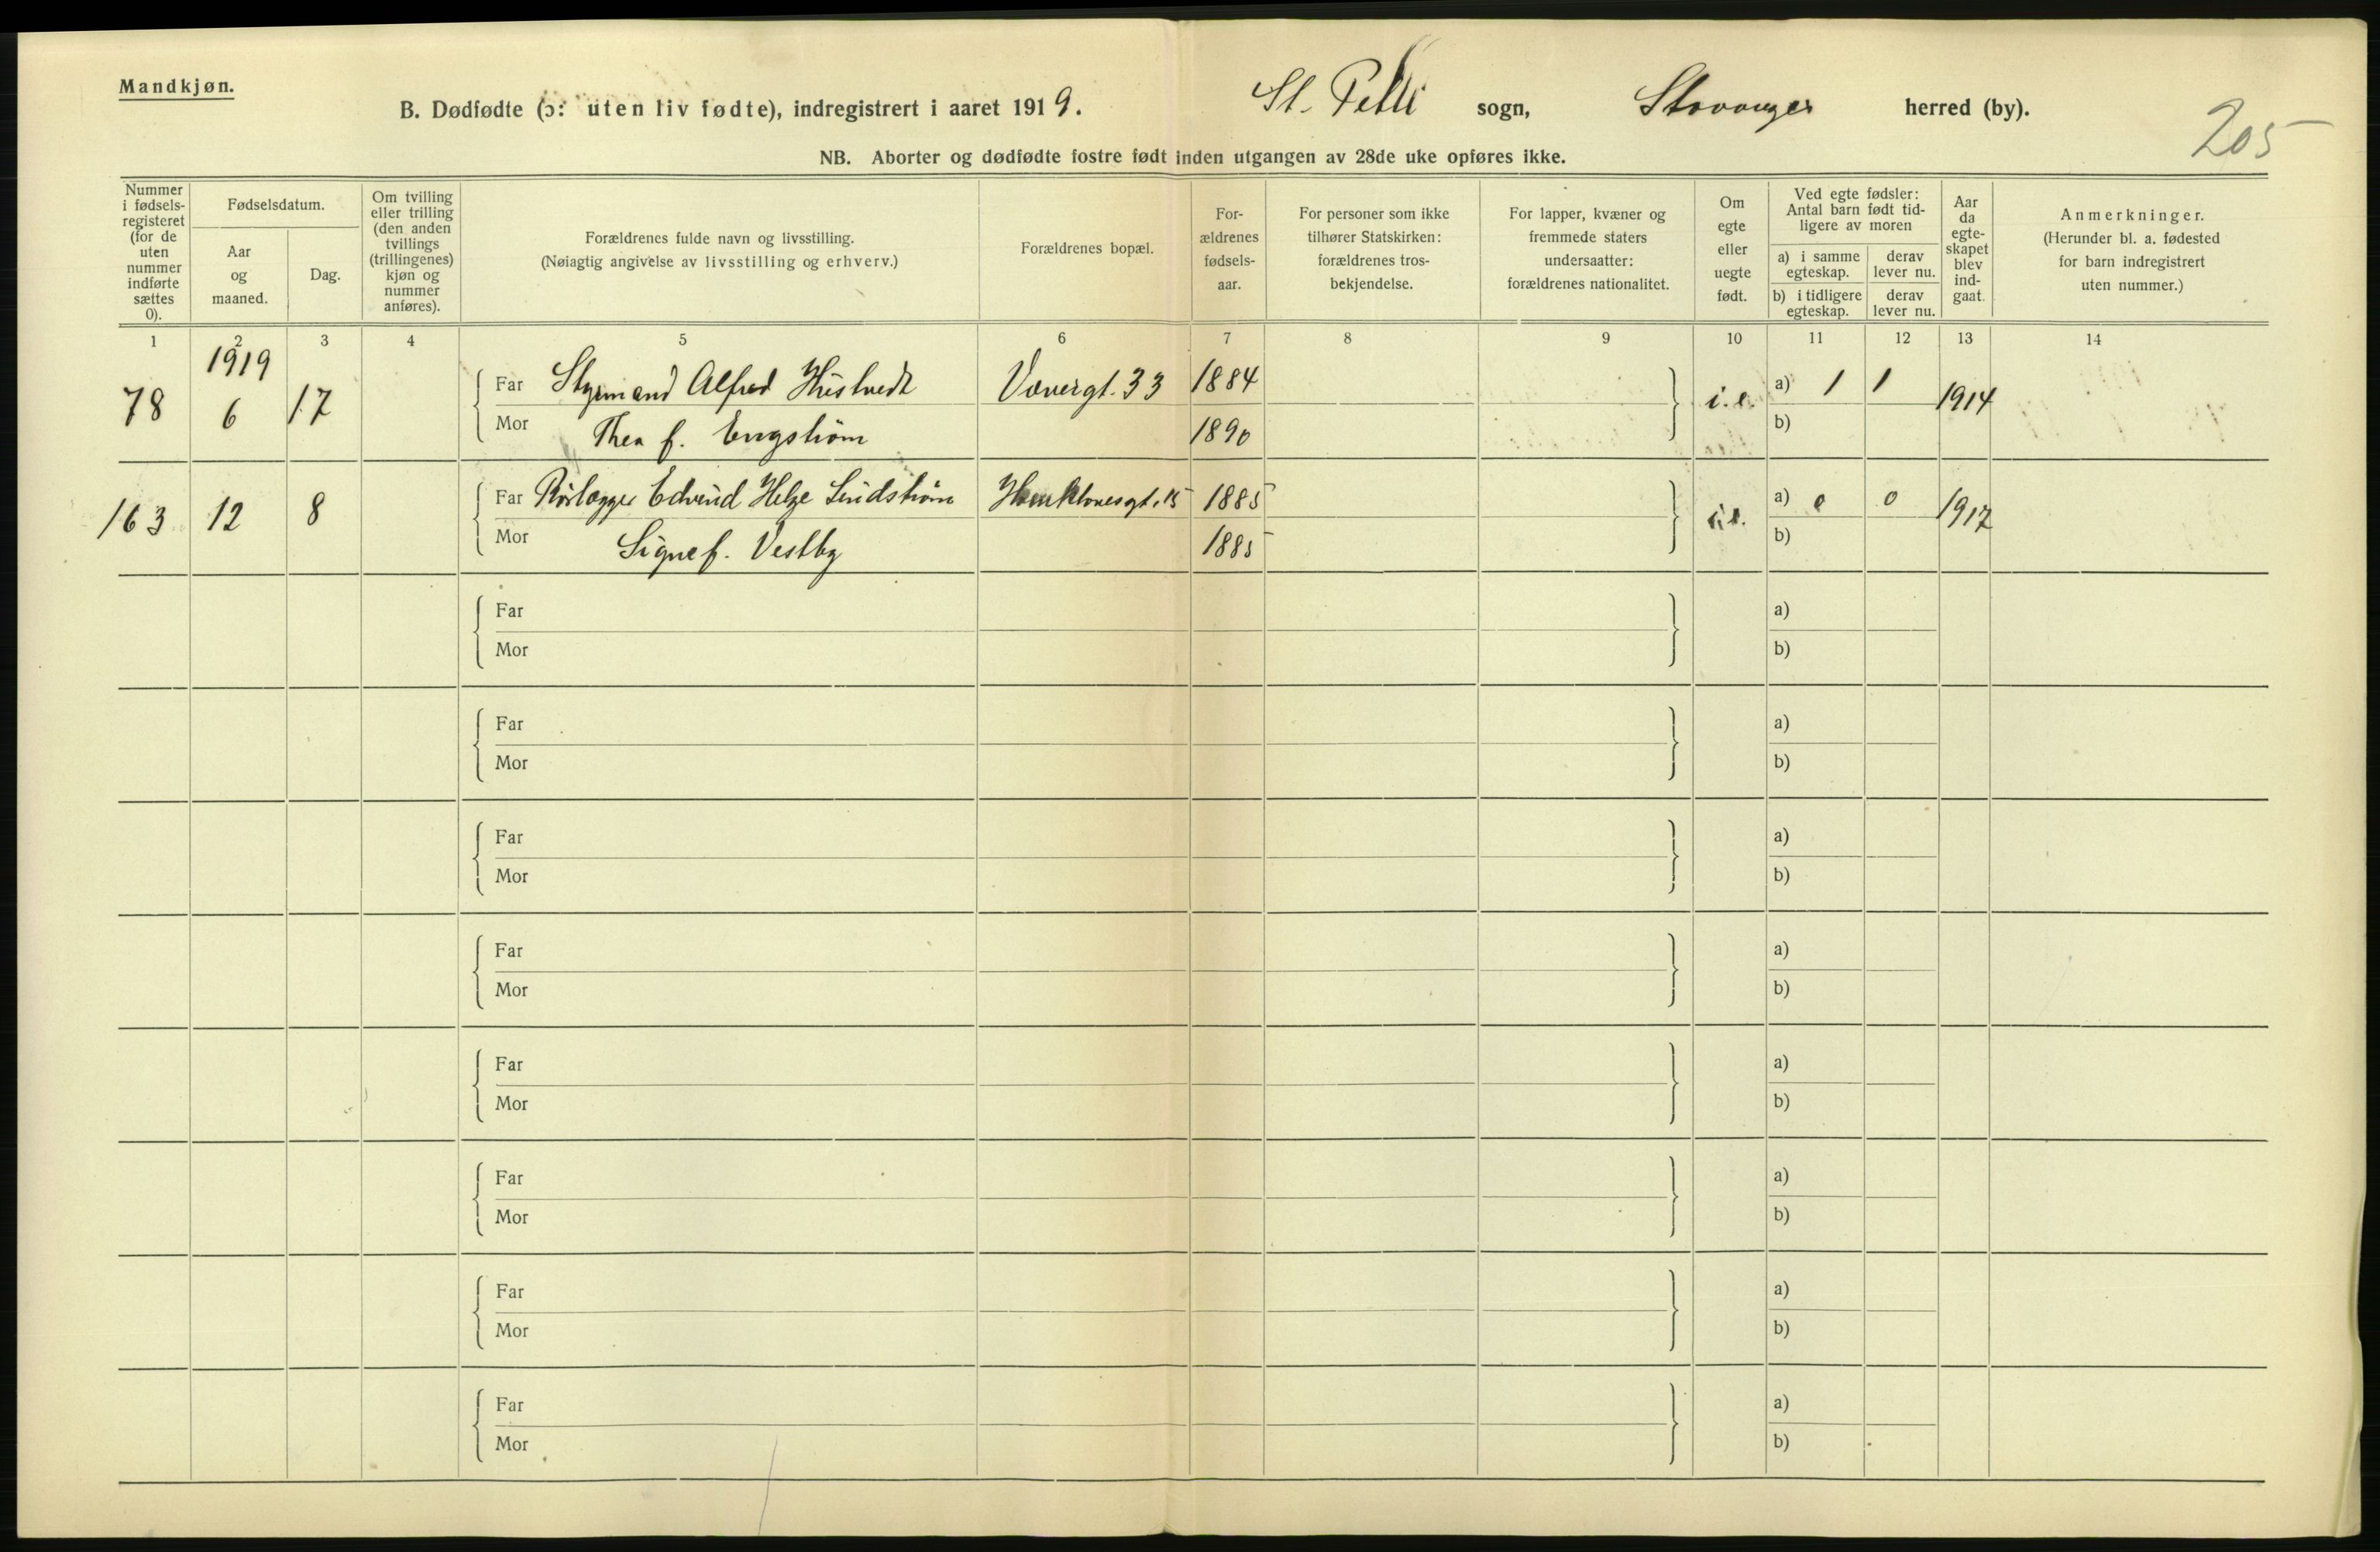 Mandkjøn.
B. Dødfødte (ɔ: uten liv fødte), indregistrert i aaret 1919. St. Petri sogn, Stavanger herred (by).
205
NB. Aborter og dødfødte fostre født inden utgangen av 28de uke opføres ikke.
Nummer
i fødsels-
registeret
(for de
uten
nummer
indførte
sættes
0).
Fødselsdatum.
Aar
og
maaned.
Dag.
Om tvilling
eller trilling
(den anden
tvillings
(trillingenes)
kjøn og
nummer
anføres).
Forældrenes fulde navn og livsstilling.
(Nøiagtig angivelse av livsstilling og erhverv.)
Forældrenes bopæl.
For-
ældrenes
fødsels-
aar.
For personer som ikke
tilhører Statskirken:
forældrenes tros-
bekjendelse.
For lapper, kvæner og
fremmede staters
undersaatter:
forældrenes nationalitet.
Om
egte
eller
uegte
født.
Ved egte fødsler:
Antal barn født tid-
ligere av moren
a) i samme
egteskap.
derav
lever nu.
b) i tidligere
egteskap.
derav
lever nu.
Aar
da
egte-
skapet
blev
ind-
gaat.
Anmerkninger.
(Herunder bl. a. fødested
for barn indregistrert
uten nummer.)
1 2 3 4 5 6 7 8 9 10 11 12 13 14
1919
78 6 17 Far Styrmand Alfred Hustvedt Vævergt. 33 1884 i.e. a) 1 1 1914
Mor Thea f. Engstrøm 1890 b)
163 12 8 Far Rørlægger Edvind Helge Lindstrøm 15 1885 i.e. a) 0 0 1917
Mor Signe f. Vestby 1885 b)
Far a)
Mor b)
Far a)
Mor b)
Far a)
Mor b)
Far a)
Mor b)
Far a)
Mor b)
Far a)
Mor b)
Far a)
Mor b)
Far a)
Mor b)